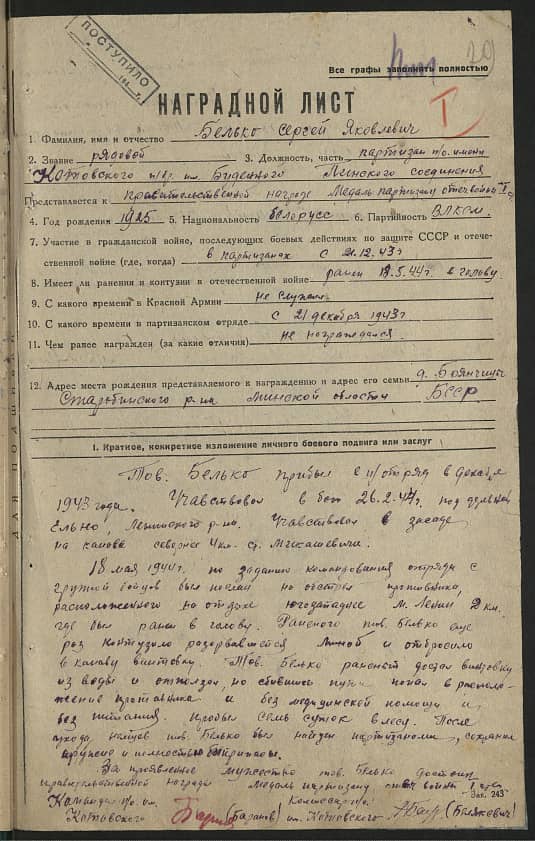 ПОСТУПИЛО
29
Все графы заполнить полностью
НАГРАДНОЙ ЛИСТ
I
1. Фамилия, имя и отчество Белько Сергей Яковлевич
2. Звание рядовой 3. Должность, часть партизан п/о имени
Котовского п/бр. им. Буденного Минского соединения
Представляется к правительственной награде Медаль партизану отеч войны I ст
4. Год рождения 1925 5. Национальность белорусс 6. Партийность ВЛКСМ
7. Участие в гражданской войне, последующих боевых действиях по защите СССР и отече-
ственной войне (где, когда) в партизанах с 21.12.43г
8. Имеет ли ранения и контузии в отечественной войне ранен 18.5.44г в голову
9. С какого времени в Красной Армии не служил
10. С какого времени в партизанском отряде с 21 декабря 1943г
11. Чем ранее награжден (за какие отличия) не награждался.
12. Адрес места рождения представляемого к награждению и адрес его семьи д.
Старобинского р-на Минской области БССР
ДЛЯ ПОДШИВКИ
I. Краткое, конкретное изложение личного боевого подвига или заслуг
Тов. Белько прибыл в п/отряд в декабре
1943 года. Учавствовал в бою 26.2.44г. под
Ельно, Ленинского р-на. Учавствовал в засаде
на канаве севернее 4 км. ст. Микашевичи.
18 мая 1944г. по заданию командования отряда с
группой бойцов был послан на обстрел противника,
расположенного на отдыхе югозападнее м. Ленин 2 км.
где был ранен в голову. Раненого тов. Белько еще
раз контузило разорвавшейся миной и отбросило
в канаву винтовку. Тов. Белько раненый достал винтовку
из воды и отползал, но сбившись пути попал в располо-
жение противника и без медицинской помощи и
без питания пробыл семь суток в лесу. После
ухода немцев тов. Белько был найден партизанами, сохранив
оружие и полностью
За проявленное мужество тов. Белько достоин
правительственной награды медаль партизану отеч войны I степ
Зак. 243
Командир п/о. им. Комиссар п/о.
Котовского (Баранов) им. Котовского (Белякович)